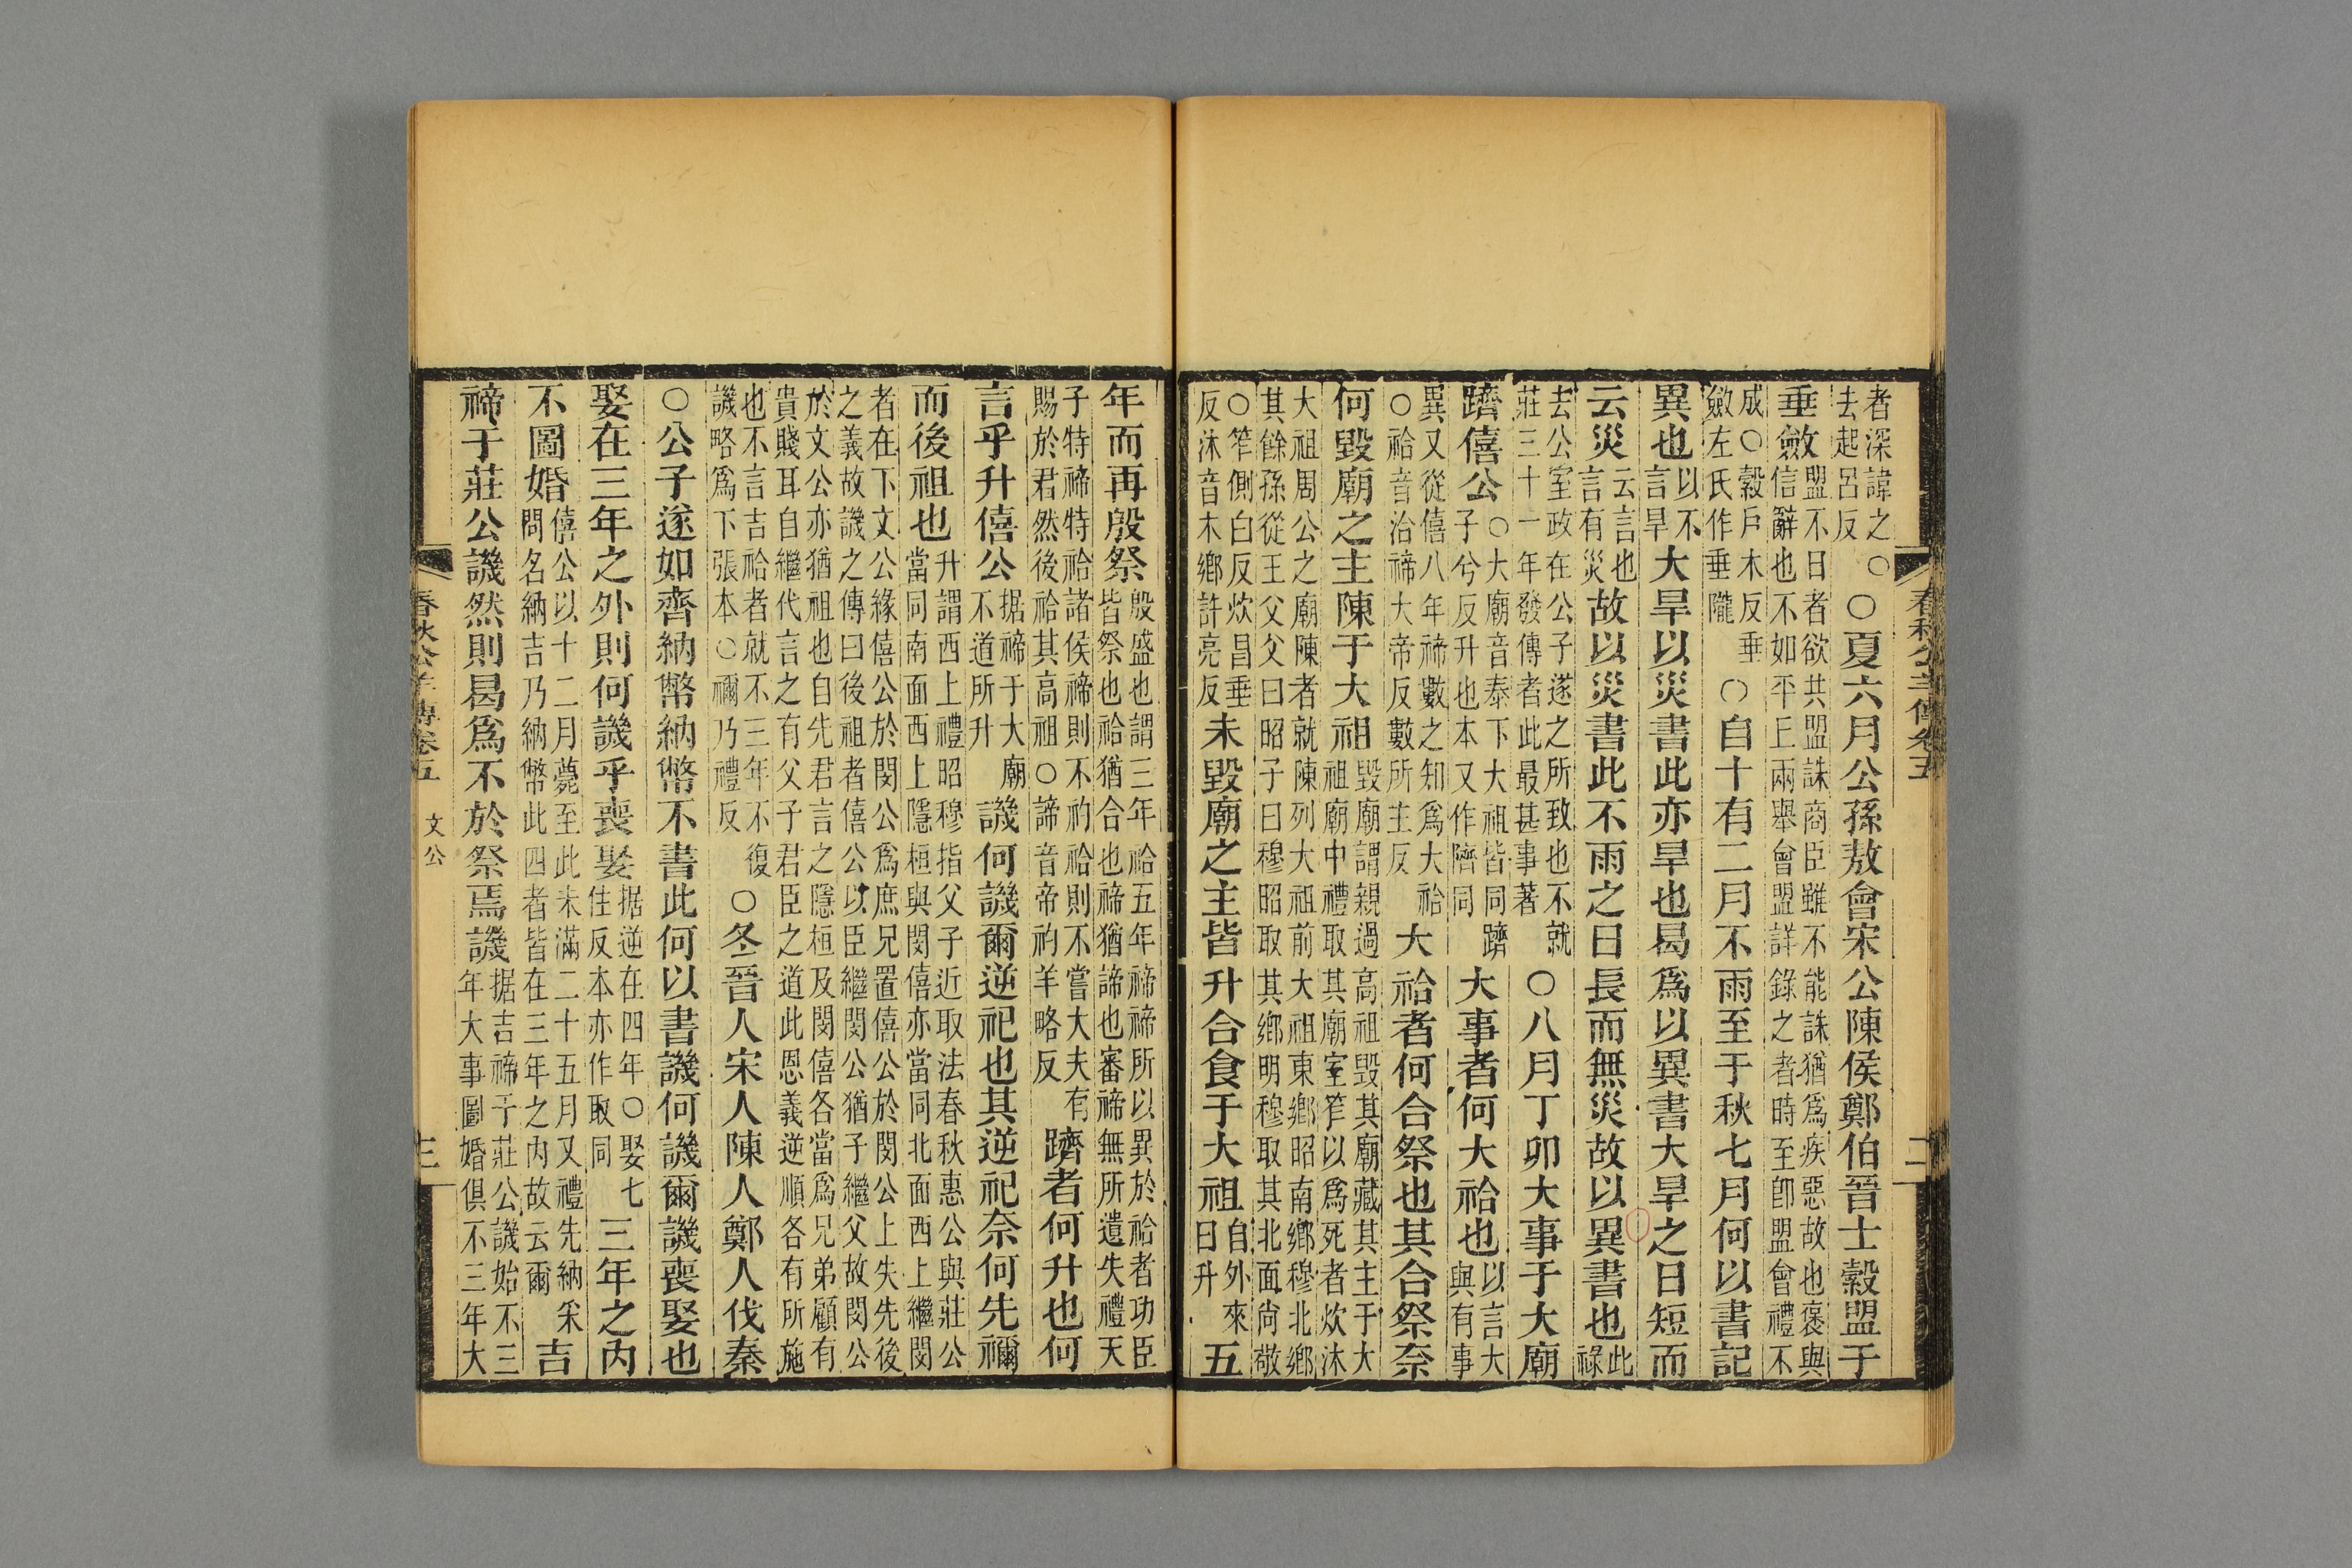 者深諱之○去起呂反○夏六月公孫敖會宋公陳侯鄭伯晉士縠盟于
垂斂盟不日者欲共盟誅商臣雖不能誅猶爲疾惡故也褒與信辭也不如平丘兩舉會盟詳錄之者時至卽盟會禮不
成○縠戶木反垂斂左氏作垂隴○自十有二月不雨至于秋七月何以書記
異也以不言旱大旱以災書此亦旱也曷爲以異書大旱之日短而
云災云言也言有災故以災書此不雨之日長而無災故以異書也此祿
去公室政在公子遂之所致也不就莊三十一年發傳者此最甚事著○八月丁卯大事于大廟
躋僖公○大廟音泰下大祖皆同躋子兮反升也本又作隮同大事者何大祫也以言大與有事
異又從僖八年禘數之知爲大祫○祫音洽禘大帝反數所主反大祫者何合祭也其合祭奈
何毀廟之主陳于大祖毀廟謂親過高祖毀其廟藏其主于大祖廟中禮取其廟室笮以爲死者炊沐
大祖周公之廟陳者就陳列大祖前大祖東鄉昭南鄉穆北鄉其餘孫從王父父曰昭子曰穆昭取其鄉明穆取其北面尙敬
○笮側白反炊昌垂反沐音木鄉許亮反未毀廟之主皆升合食于大祖自外來曰升五
春秋公羊傳卷五
二
年而再殷祭殷盛也謂三年祫五年禘禘所以異於祫者功臣皆祭也祫猶合也禘猶諦也審禘無所遺失禮天
子特禘特祫諸侯禘則不礿祫則不嘗大夫有賜於君然後祫其高祖○諦音帝礿羊略反躋者何升也何
言乎升僖公据禘于大廟不道所升譏何譏爾逆祀也其逆祀奈何先禰
而後祖也升謂西上禮昭穆指父子近取法春秋惠公與莊公當同南面西上隱桓與閔僖亦當同北面西上繼閔
者在下文公緣僖公於閔公爲庶兄置僖公於閔公上失先後之義故譏之傳曰後祖者僖公以臣繼閔公猶子繼父故閔公
於文公亦猶祖也自先君言之隱桓及閔僖各當爲兄弟顧有貴賤耳自繼代言之有父子君臣之道此恩義逆順各有所施
也不言吉祫者就不三年不復譏略爲下張本○禰乃禮反○冬晉人宋人陳人鄭人伐秦
○公子遂如齊納幣納幣不書此何以書譏何譏爾譏喪娶也
娶在三年之外則何譏乎喪娶据逆在四年○娶七住反本亦作取同三年之內
不圖婚僖公以十二月薨至此未滿二十五月又禮先納采問名納吉乃納幣此四者皆在三年之內故云爾吉
禘于莊公譏然則曷爲不於祭焉譏据吉禘于莊公譏始不三年大事圖婚俱不三年大
春秋公羊傳卷五
文公
三